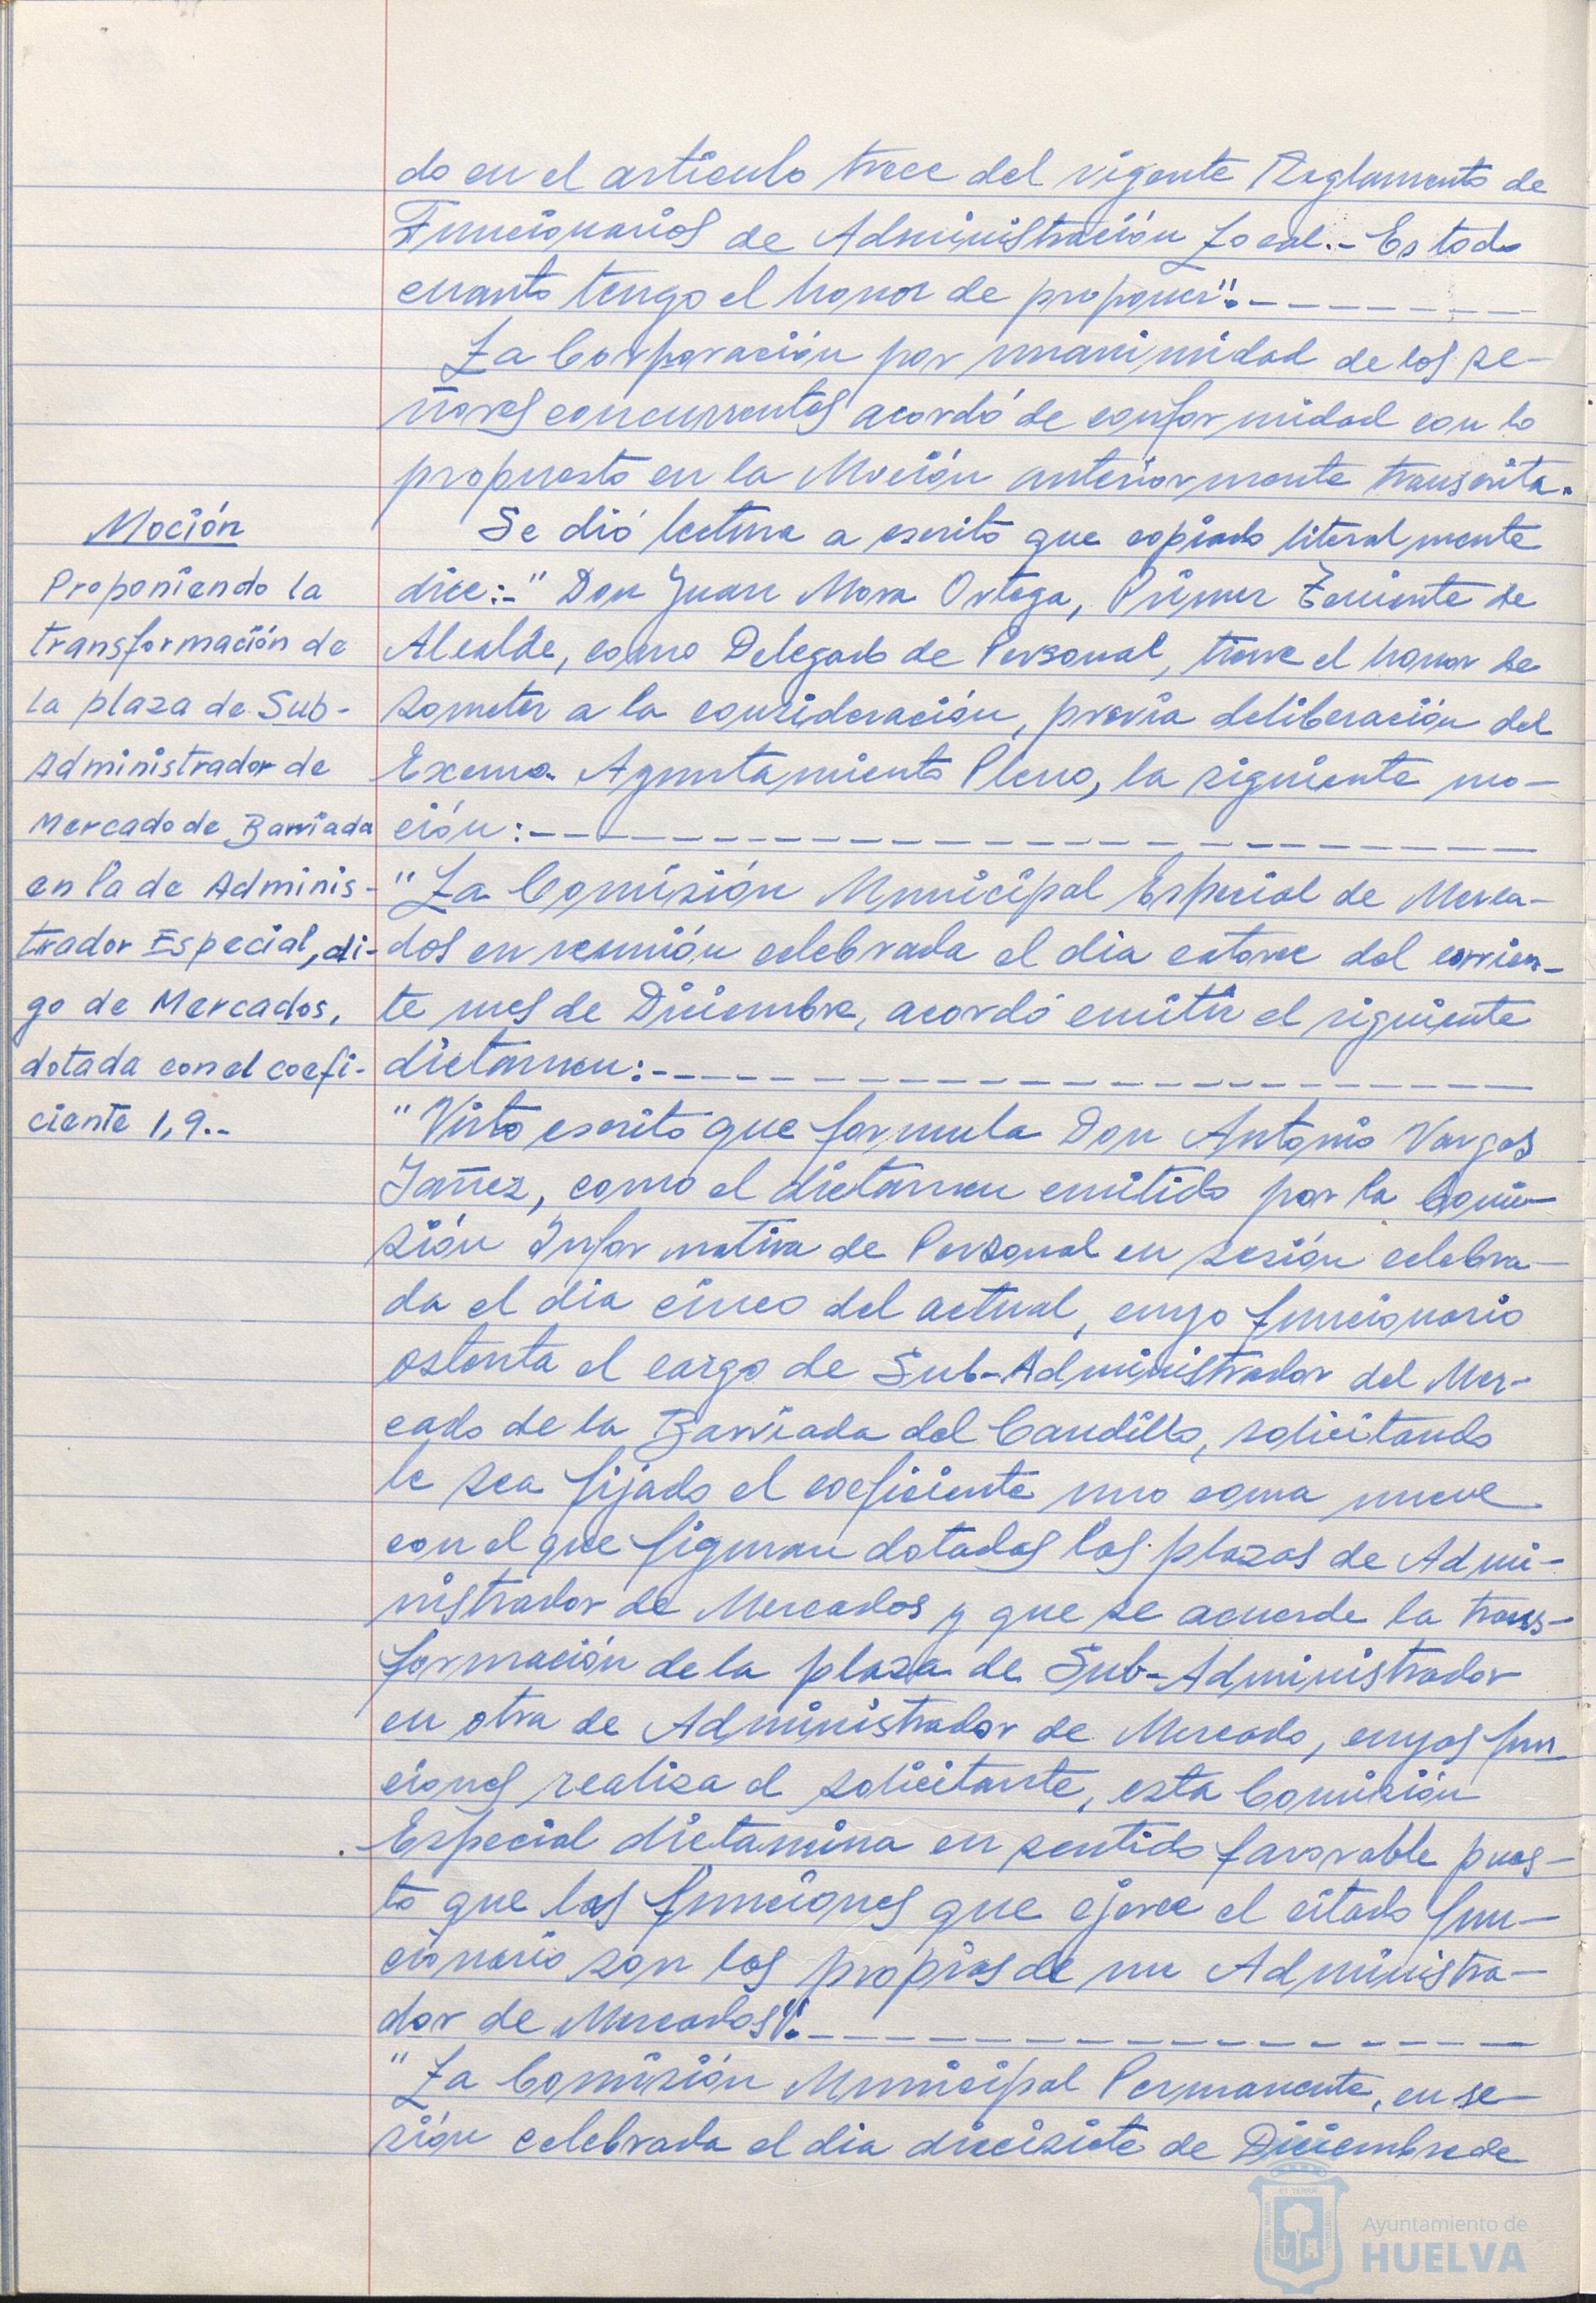 do en el artículo trece del vigente Reglamento de
Funcionarios de Administración Local.- Es todo
cuanto tengo el honor de proponer".-
La Corporación por unanimidad de los se-
ñores concurrentes acordó de conformidad con lo
propuesto en la Moción anteriormente transcrita.
Moción
Proponiendo la
transformación de
la plaza de Sub-
Administrador de
Mercado de Barriada
en la de Adminis-
trador Especial, di-
go de Mercados,
dotada con el coefi-
ciente 1,9.-
Se dió lectura a escrito que copiado literalmente
dice:-" Don Juan Mora Ortega, Primer Teniente de
Alcalde, como Delegado de Personal, tiene el honor de
someter a la consideración, previa deliberación del
Excmo. Ayuntamiento Pleno, la siguiente mo-
ción:-
"La Comisión Municipal Especial de Merca-
dos en reunión celebrada el dia catorce del corrien-
te mes de Diciembre, acordó emitir el siguiente
dictamen:-
"Visto escrito que formula Don Antonio Vargas
Yañez, como el dictamen emitido por la Comi-
sión Informativa de Personal en sesión celebra-
da el dia cinco del actual, cuyo funcionario
ostenta el cargo de Sub-Administrador del Mer-
cado de la Barriada del Caudillo, solicitando
le sea fijado el coeficiente uno coma nueve
con el que figuran dotadas las plazas de Admi-
nistrador de Mercados y que se acuerde la trans-
formación de la plaza de Sub-Administrador
en otra de Administrador de Mercado, cuyas fun
ciones realiza el solicitante, esta Comisión
Especial dictamina en sentido favorable pues-
to que las funciones que ejerce el citado fun-
cionario son las propias de un Administra-
dor de Mercados".-
"La Comisión Municipal Permanente, en se-
sión celebrada el dia diecisiete de Diciembre de
Ayuntamiento de
HUELVA